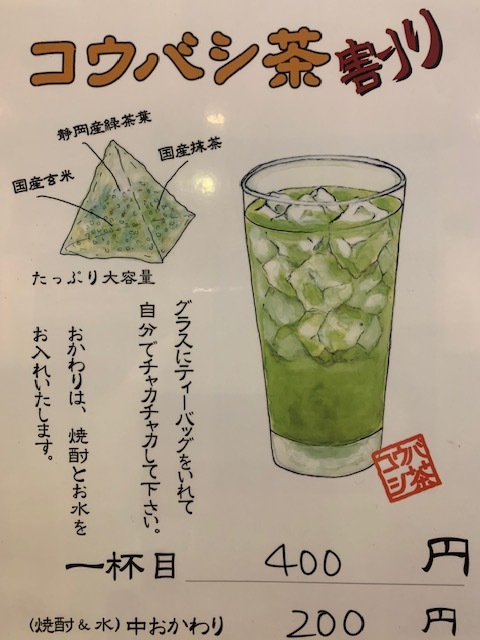 コウバシ茶割り
静岡産緑茶葉
国産抹茶
国産玄米
たっぷり大容量
グラスにティーバッグをいれて
自分でチャカチャカして下さい。
おかわりは、焼酎とお水を
お入れいたします。
コウバシ茶
一杯目 400 円
(焼酎&水)中おかわり 200 円